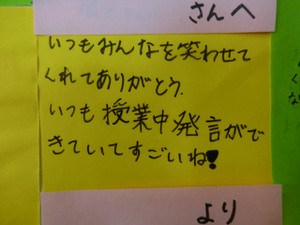 さんへ
いつもみんなを笑わせて
くれてありがとう.
いつも授業中発言がで
きていてすごいね!
より